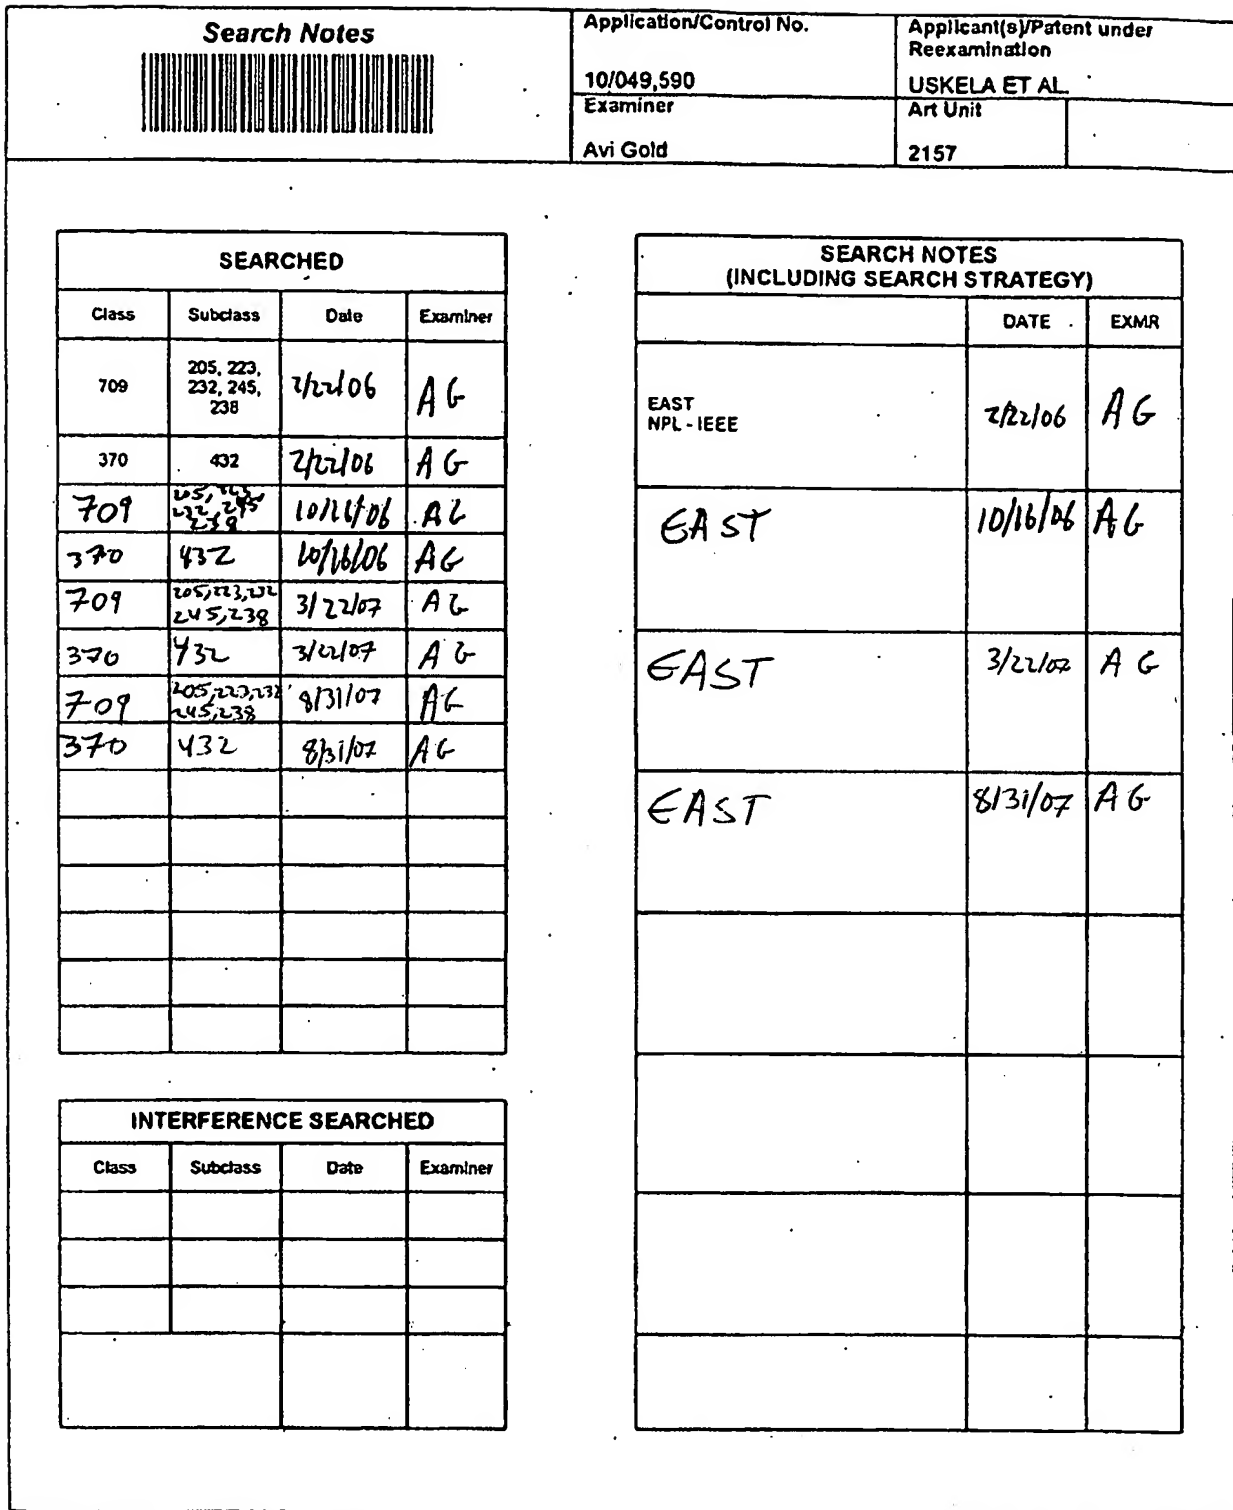 Search Notes
Application/Control No.
10/049,590
Applicant(s)/Patent under
Reexamination
USKELA ET AL.
Examiner
Avi Gold
Art Unit
2157
SEARCHED
Class Subclass Date Examiner
709 205, 223, 2/22/06 AG
232, 245,
238
370 432 2/22/06 AG
709 205, 223, 10/16/06 AG
232, 245
238
370 432 10/16/06 AG
709 205,223,232 3/22/07 AG
245,238
370 432 3/22/07 AG
709 205,223,232 8/31/07 AG
245,238
370 432 8/31/07 AG
INTERFERENCE SEARCHED
Class Subclass Date Examiner
SEARCH NOTES
(INCLUDING SEARCH STRATEGY)
DATE EXMR
EAST
NPL - IEEE 2/22/06 AG
EAST 10/16/06 AG
EAST 3/22/07 AG
EAST 8/31/07 AG